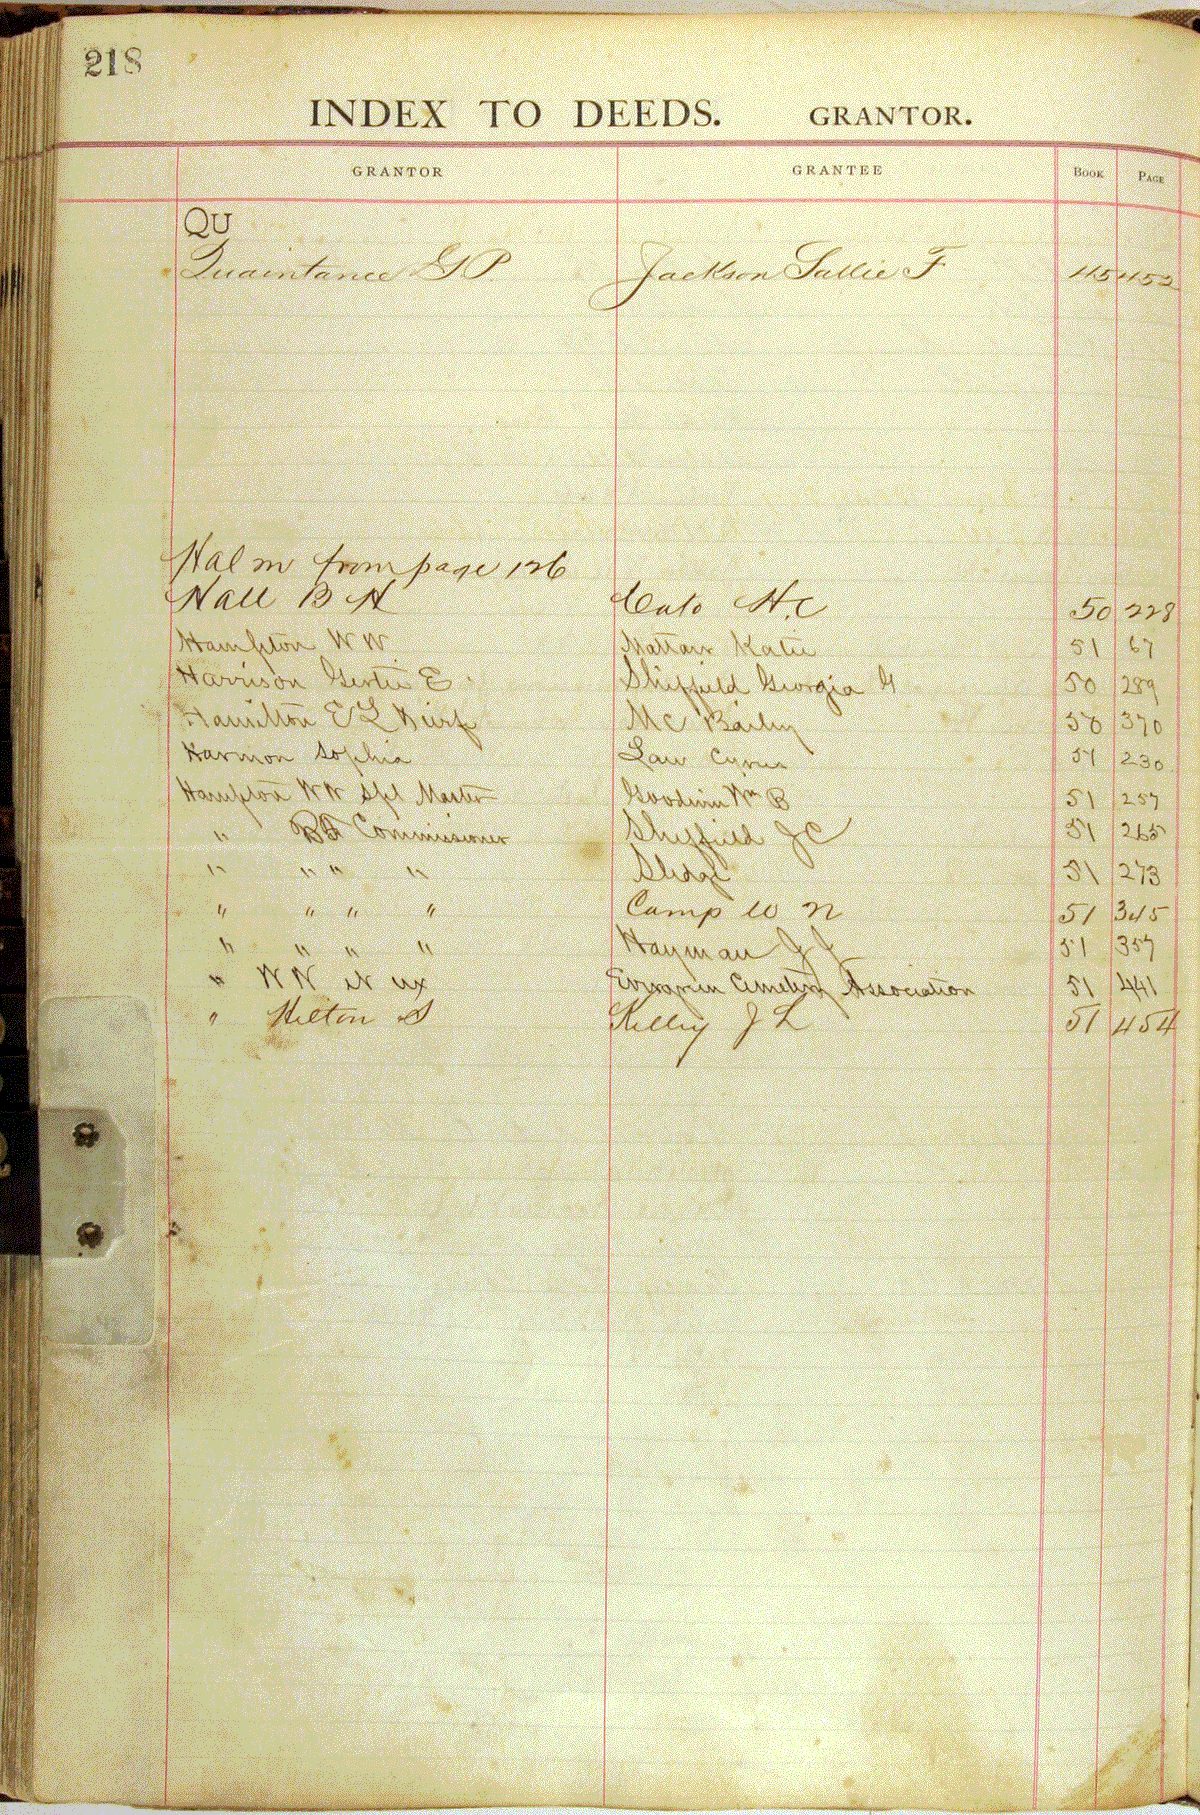 218
INDEX TO DEEDS. GRANTOR.
GRANTOR GRANTEE BOOK PAGE
QU
Quaintance G P. Jackson Sallie F 45 452
Halm from page 126
Hall B H Cato H.C 50 228
Hampton W W Mattair Katie 51 67
Harrison Gertie E Sheffield Georgia 50 289
Hamilton E L Mc Bailey 50 370
Harmon Sophia Law Cyrus 51 230
Hampton WW Spl Master Goodwin Wm B 51 257
" Commissioner Sheffield J C 51 265
" " " " Sledge 51 273
" " " " Camp W N 51 345
" " " " Hayman J J 51 357
" W W et ux Evergreen Cemetery Association 51 441
" Hilton S Kelley J L 51 454